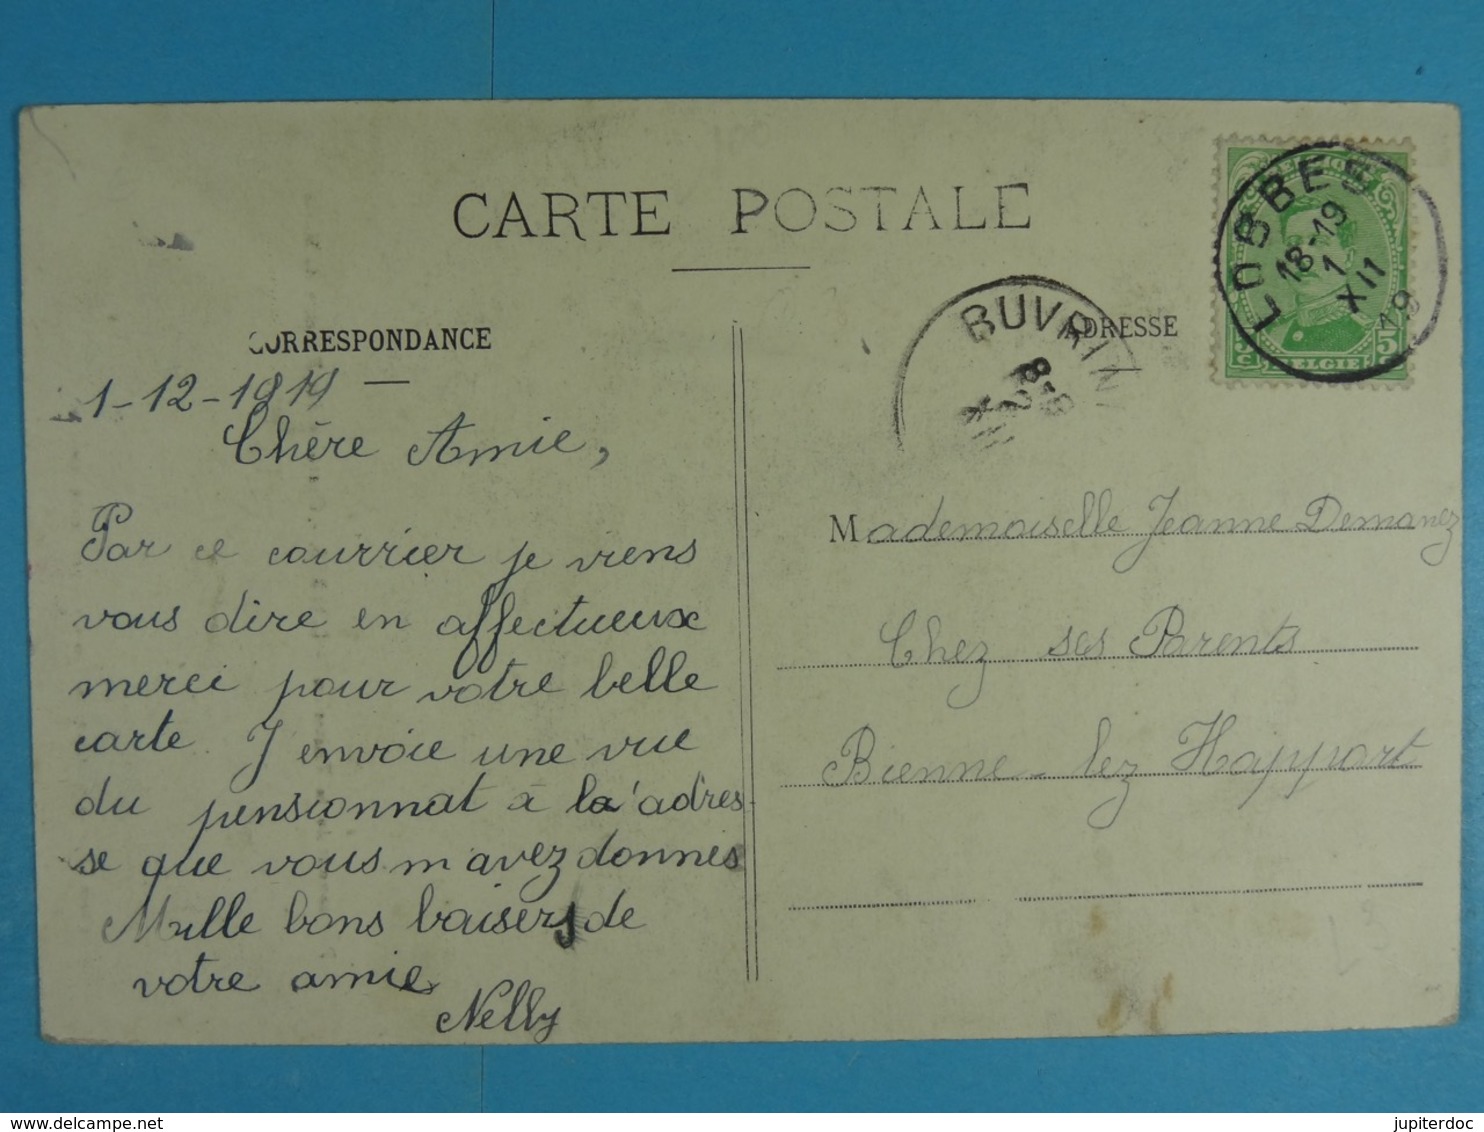 CARTE POSTALE
CORRESPONDANCE
1-12-1919
Chère Amie,
Par ce courrier je viens
vous dire en affectueux
merci pour votre belle
carte J envoie une vue
du pensionnat à la'adres
se que vous m avez donnés
Mille bons baisers de
votre amie
Nelly
BUVRIN
8-9
XII
ADRESSE
LOBBES
18-19
1
XII
19
5c
5c
BELGIE
Mademoiselle Jeanne Demanez
Chez ses Parents
Bienne-lez Happart
L 3
delcampe.net
jupiterdoc